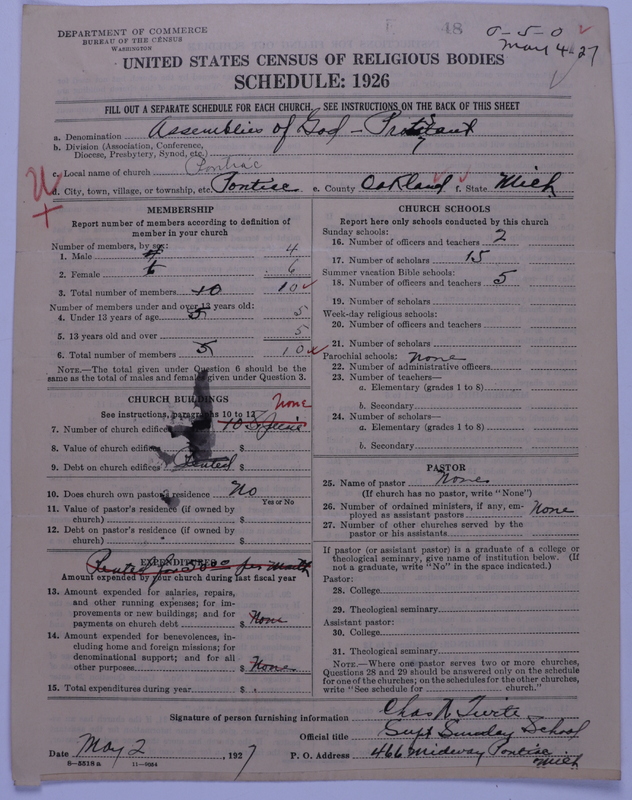 DEPARTMENT OF COMMERCE
BUREAU OF THE CENSUS
WASHINGTON
18
0-5-0
May 4-27
UNITED STATES CENSUS OF RELIGIOUS BODIES
SCHEDULE: 1926
FILL OUT A SEPARATE SCHEDULE FOR EACH CHURCH. SEE INSTRUCTIONS ON THE BACK OF THIS SHEET
a. Denomination Assemblies of God - Protestant
b. Division (Association, Conference,
Diocese, Presbytery, Synod, etc.)
c. Local name of church Pontiac
d. City, town, village, or township, etc. Pontiac e. County Oakland f. State Mich
MEMBERSHIP
Report number of members according to definition of
member in your church
Number of members, by sex:
1. Male 4 4
2. Female 6 6
3. Total number of members 10 10
Number of members under and over 13 years old:
4. Under 13 years of age 5 5
5. 13 years old and over 5
6. Total number of members 5 10
NOTE.—The total given under Question 6 should be
same as the total of males and females given under Question 3.
CHURCH BUILDINGS
None
See instructions, paragraphs 10 to 12
7. Number of church edifices 10
8. Value of church edifices $
9. Debt on church edifices Rented $
10. Does church own pastor's residence No
Yes or No
11. Value of pastor's residence (if owned by
church) $
12. Debt on pastor's residence (if owned by
church) $
EXPENDITURES
Rented for 500 per month
Amount expended by your church during last fiscal year
13. Amount expended for salaries, repairs,
and other running expenses; for im-
provements or new buildings; and for
payments on church debt $ None
14. Amount expended for benevolences, in-
cluding home and foreign missions; for
denominational support; and for all
other purposes $ None
15. Total expenditures during year $
CHURCH SCHOOLS
Report here only schools conducted by this church
Sunday schools:
16. Number of officers and teachers 2
17. Number of scholars 15
Summer vacation Bible schools:
18. Number of officers and teachers 5
19. Number of scholars
Week-day religious schools:
20. Number of officers and teachers
21. Number of scholars
Parochial schools: None
22. Number of administrative officers
23. Number of teachers—
a. Elementary (grades 1 to 8)
b. Secondary
24. Number of scholars—
a. Elementary (grades 1 to 8)
b. Secondary
PASTOR
25. Name of pastor None
(If church has no pastor, write "None")
26. Number of ordained ministers, if any, em-
ployed as assistant pastors None
27. Number of other churches served by the
pastor or his assistants
If pastor (or assistant pastor) is a graduate of a college or
theological seminary, give name of institution below. (If
not a graduate, write "No" in the space indicated.)
Pastor:
28. College
29. Theological seminary
Assistant pastor:
30. College
31. Theological seminary
NOTE.—Where one pastor serves two or more churches,
Questions 28 and 29 should be answered only on the schedule
for one of the churches; on the schedules for the other churches,
write "See schedule for church."
Signature of person furnishing information Chas
Official title Supt Sunday School
Date May 2, 1927 P. O. Address 466 Midway Pontiac
Mich
8-5518a 11-9034